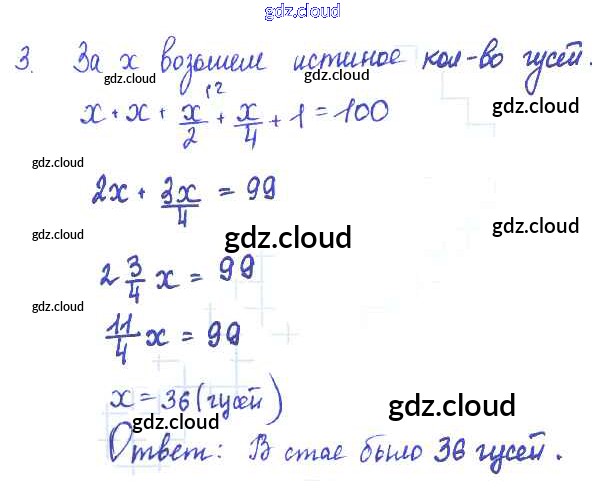 gdz.cloud
3. За x возьмем истиное кол-во гусей.
gdz.cloud
gdz.cloud
x + x + x/2 + x/4 + 1 = 100
gdz.cloud
2x + 3x/4 = 99
gdz.cloud
gdz.cloud
gdz.cloud
2 3/4 x = 99
gdz.cloud
11/4 x = 99
x = 36 (гусей)
gdz.cloud
gdz.cloud
Ответ: В стае было 36 гусей.